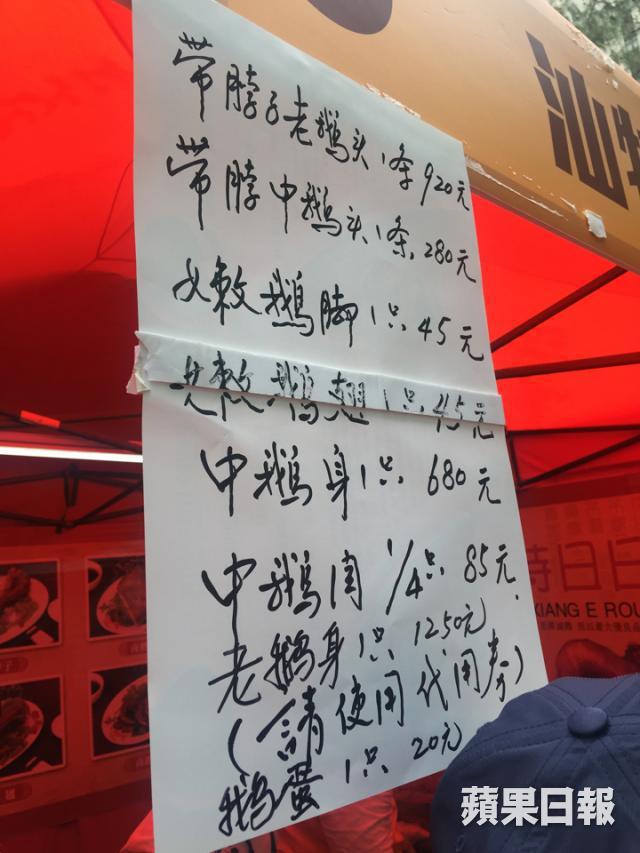 汕特
带脖子老鹅头1条920元
带脖中鹅头1条280元
嫩鹅脚1只45元
嫩鹅翅1只45元
中鹅身1只680元
中鹅肉1/4只85元
老鹅身1只1250元
(請使用代用券)
鹅蛋1只20元
日日
XIANG E ROU
蘋果日報